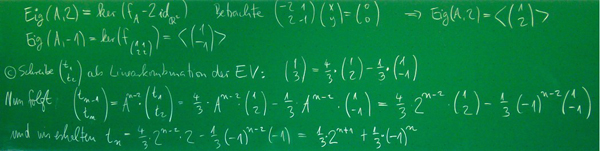 Eig(A,2) = ker(f_A - 2 id_{ℚ²}) Betrachte (-2 1; 2 -1)(x; y) = (0; 0) ⟹ Eig(A,2) = <(1; 2)>
Eig(A,-1) = ker(f_{(1 1; 2 2)}) = <(1; -1)>
Ⓒ Schreibe (t_1; t_2) als Linearkombination der EV: (1; 3) = 4/3·(1; 2) - 1/3·(1; -1)
Nun folgt: (t_{n-1}; t_n) = A^{n-2}(t_1; t_2) = 4/3·A^{n-2}(1; 2) - 1/3·A^{n-2}·(1; -1) = 4/3 2^{n-2}·(1; 2) - 1/3(-1)^{n-2}(1; -1)
und wir erhalten t_n = 4/3·2^{n-2}·2 - 1/3(-1)^{n-2}(-1) = 1/3·2^{n+1} + 1/3·(-1)^n